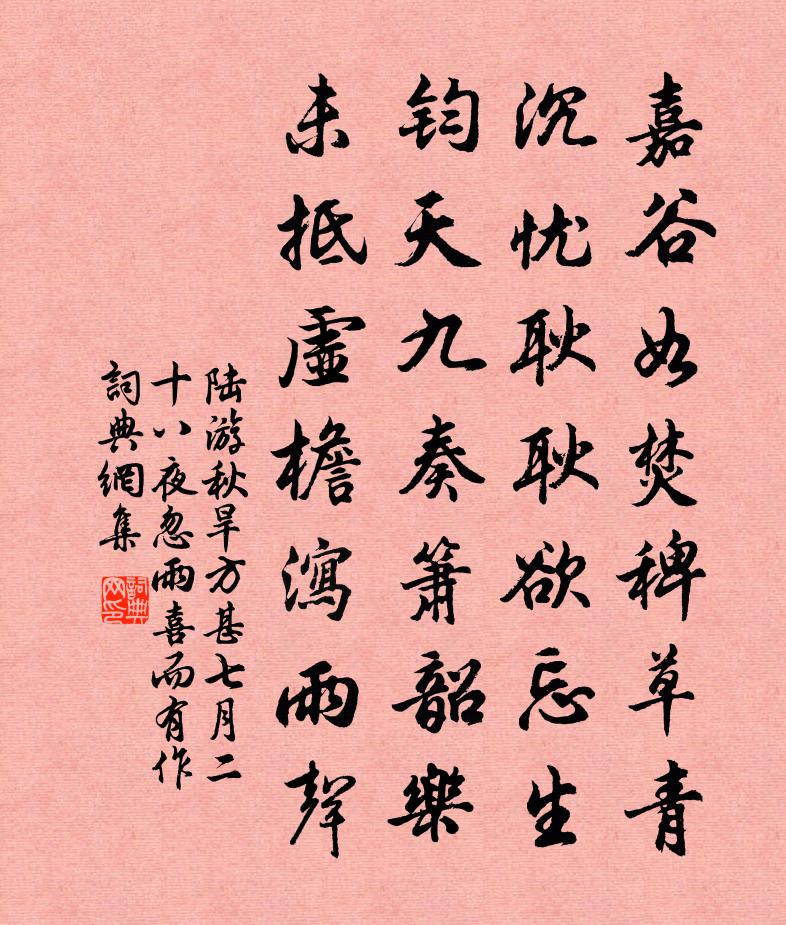 嘉谷如焚稗草青
沉忧耿耿欲忘生
钧天九奏箫韶樂
未抵虛檐瀉雨聲
陆游秋旱方甚七月二
十八夜忽雨喜而有作
詞典網集
詞典网印